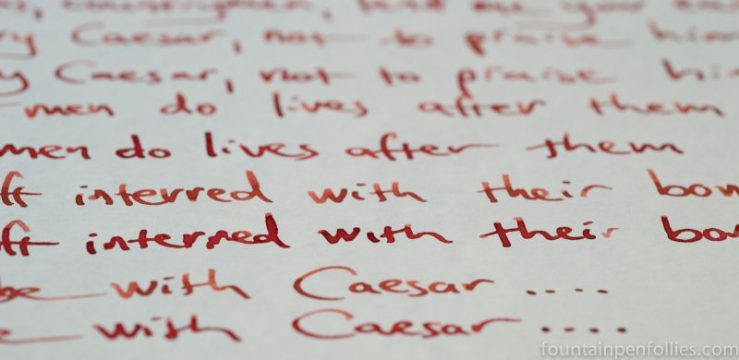 countrymen, lend me your ear
ry Caesar, not to praise him
y Caesar, not to praise hi
men do lives after them
men do lives after them
ft interred with their bon
oft interred with their bon
be with Caesar ....
e with Caesar ....
fountainpenfollies.com